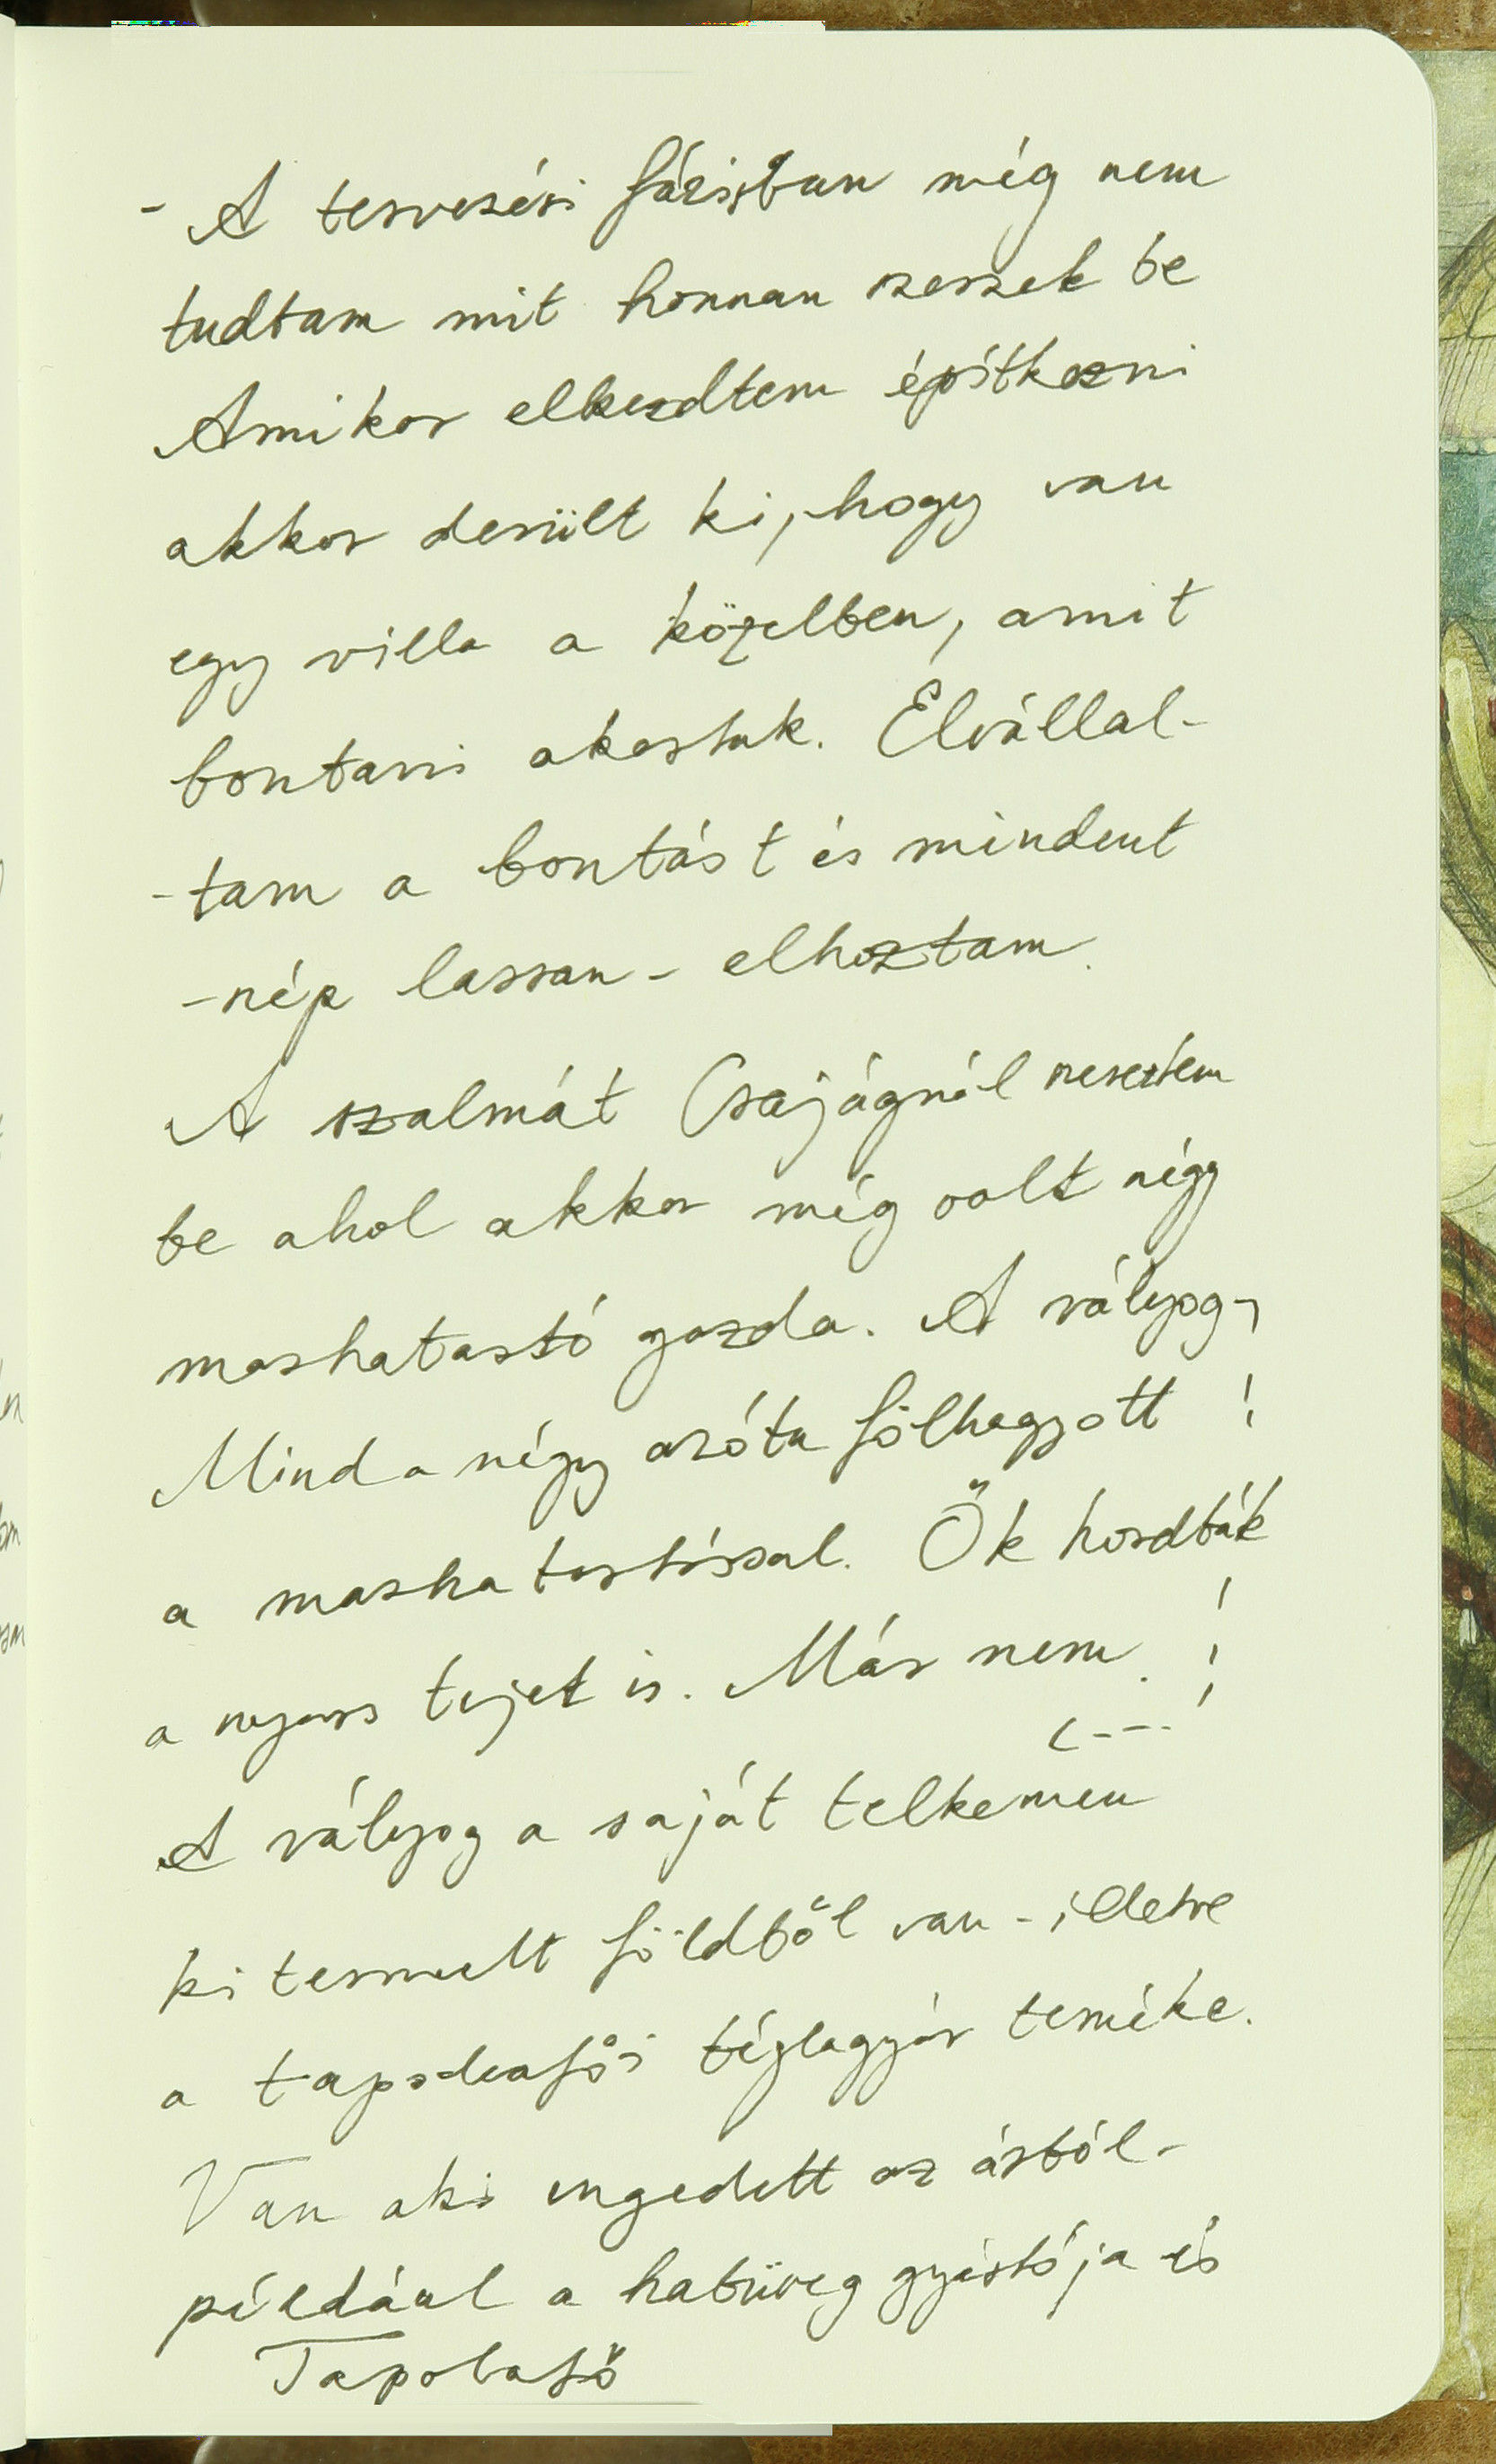 - A tervezési fázisban még nem
tudtam mit honnan szerzek be
Amikor elkezdtem építkezni
akkor derült ki, hogy van
egy villa a közelben, amit
bontani akartak. Elvállal-
-tam a bontást és mindent
-nép lassan - elhoztam.
A szalmát Csajágnál szereztem
be ahol akkor még volt négy
marhatartó gazda. A vályog
Mind a négy azóta fölhagyott
a marhatartással. Ők hordták
a nyers tejet is. Már nem.
A vályog a saját telkemen
kitermelt földből van - illetve
a tapolcafői téglagyár terméke.
Van aki engedett az árból -
például a habüveg gyártója és
Tapolcafő